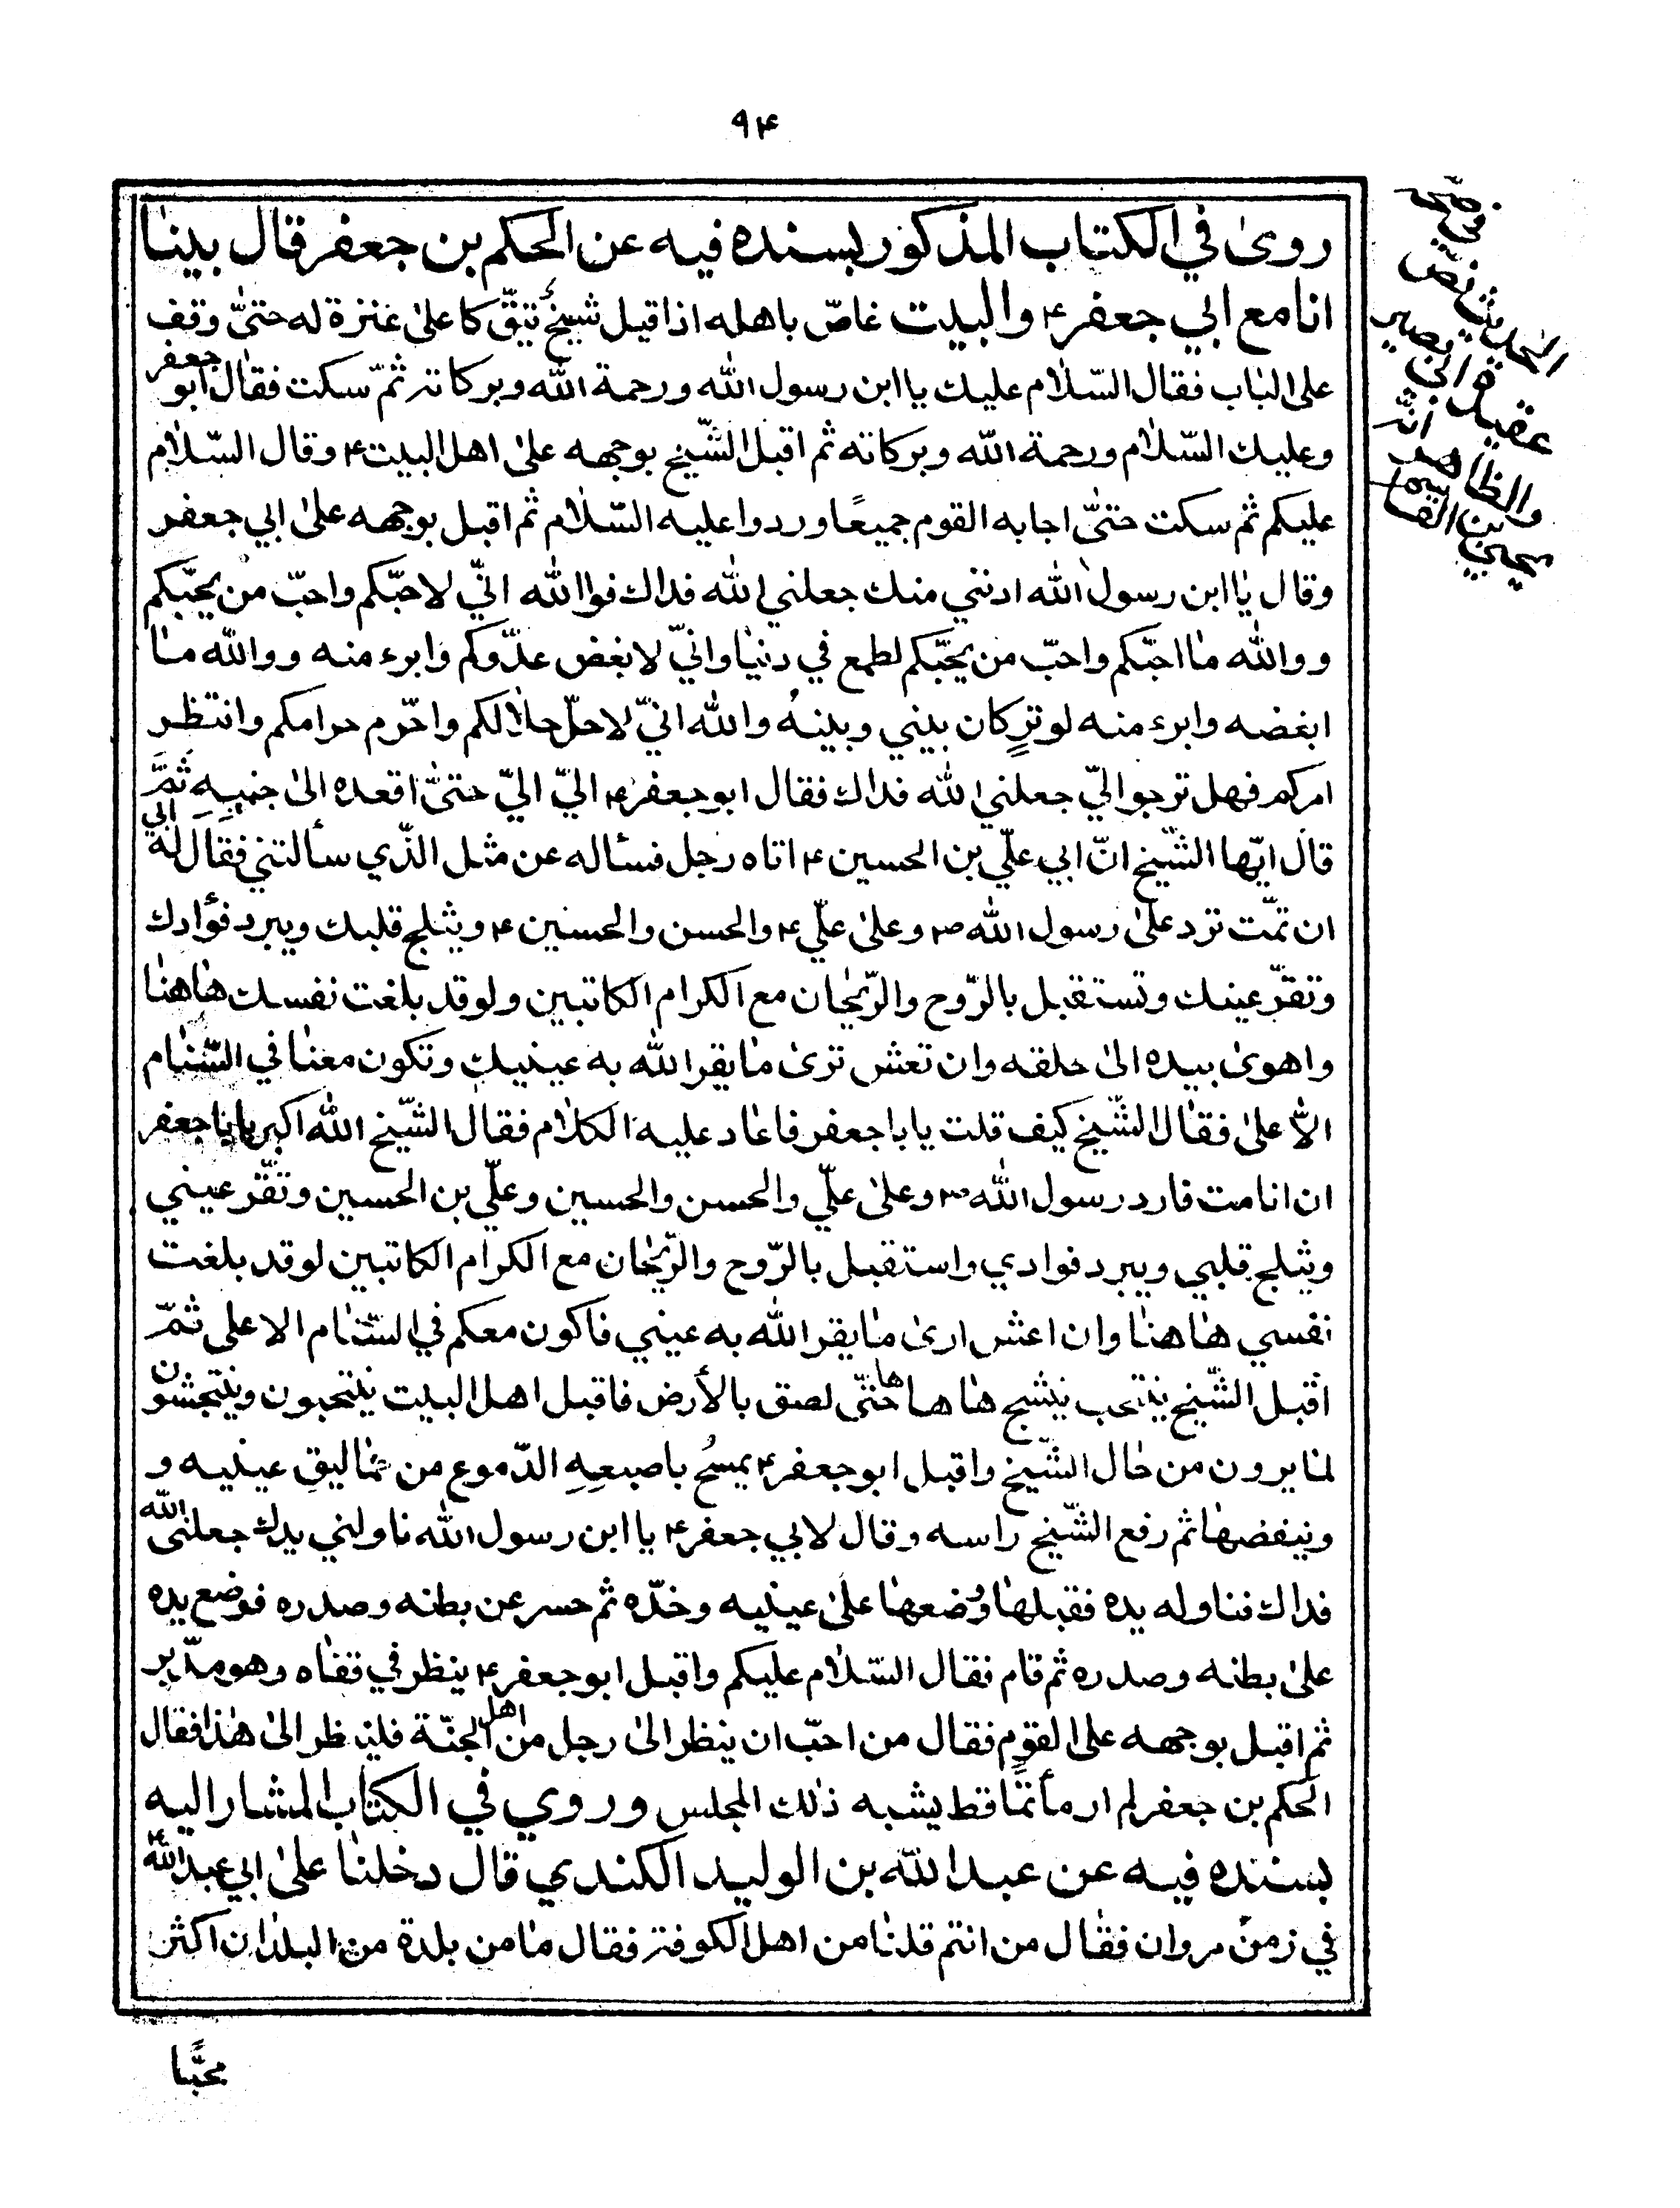 ۹۴
روى في الكتاب المذكور بسنده فيه عن الحكم بن جعفر قال بينا
انا مع ابي جعفر ۴ والبيت غاصّ باهله اذ اقبل شيخ يتوّكا على عنزة له حتىّ وقف
على الباب فقال السّلام عليك يا ابن رسول الله ورحمة الله وبركاته ثمّ سكت فقال ابو جعفر
وعليك السّلام ورحمة الله وبركاته ثم اقبل الشّيخ بوجهه على اهل البيت ۴ وقال السّلام
عليكم ثم سكت حتىّ اجابه القوم جميعًا وردوا عليه السّلام ثم اقبل بوجهه على ابي جعفر
وقال يا ابن رسول الله ادنني منك جعلني الله فداك فوالله انيّ لاحبّكم واحبّ من يحبّكم
ووالله ما احبّكم واحبّ من يحبّكم لطمع في دنيا وانيّ لابغض عدّوكم وابرء منه ووالله ما
ابغضه وابرء منه لوترٍ كان بيني وبينهُ والله انيّ لاحلّ حلالكم واحّرم حرامكم وانتظر
امركم فهل ترجوا ليّ جعلني الله فداك فقال ابو جعفر ۴ اليّ اليّ حتىّ اقعده الى جنبِهِ ثمَّ
قال ايّها الشّيخ انّ ابي علّي بن الحسين ۴ اتاه رجل فسأله عن مثل الذّي سألتني فقال له ابي
ان تمّت ترد على رسول الله ص وعلى علّي ۴ والحسن والحسين ۴ ويثلج قلبك ويبرد فؤادك
وتقرّ عينك وتستقبل بالرّوح والرّيحان مع الكرام الكاتبين ولو قد بلغت نفسك هاهنا
واهوى بيده الى حلقه وان تعش ترى ما يقر الله به عينيك وتكون معنا في السّنام
الأعلى فقال الشّيخ كيف قلت يا با جعفر فاعاد عليه الكلام فقال الشّيخ الله اكبر يا با جعفر
ان انا مت فارد رسول الله ص وعلى علّي والحسن والحسين وعلّي بن الحسين وتقّر عيني
ويثلج قلبي ويبرد فوادي واستقبل بالرّوح والرّيحان مع الكرام الكاتبين لو قد بلغت
نفسي هاهنا وان اعش ارى ما يقر الله به عيني فاكون معكم في السّنام الاعلى ثمّ
اقبل الشّيخ ينتحب ينشج ها ها ها حتّى لصق بالأرض فاقبل اهل البيت ينتحبون وينتجشون
لما يرون من حال الشّيخ واقبل ابو جعفر ۴ يمسحُ باصبعِهِ الدّموع من حماليقِ عينيه و
وينفضها ثم رفع الشّيخ راسه وقال لابي جعفر ۴ يا ابن رسول الله ناولني يدك جعلني الله
فداك فناوله يده فقبلها وُضعها على عينيه وخدّه ثم حسر عن بطنه وصدره فوضع يده
على بطنه وصدره ثم قام فقال السّلام عليكم واقبل ابو جعفر ۴ ينظر في قفاه وهو مدّبر
ثم اقبل بوجهه على القومِ فقال من احبّ ان ينظر الى رجل من اهل الجنّة فلينظر الى هذا فقال
الحكم بن جعفر لم ار مأتمًا قط يشبه ذلك المجلس وروي في الكتاب المشار اليه
بسنده فيه عن عبد الله بن الوليد الكندي قال دخلنا على ابي عبد الله ۴
في زمن مروان فقال من انتم قلنا من اهل الكوفة فقال ما من بلدة من البلدان اكثر
محبًّا
الحديث نصّ
والظاهر انّه